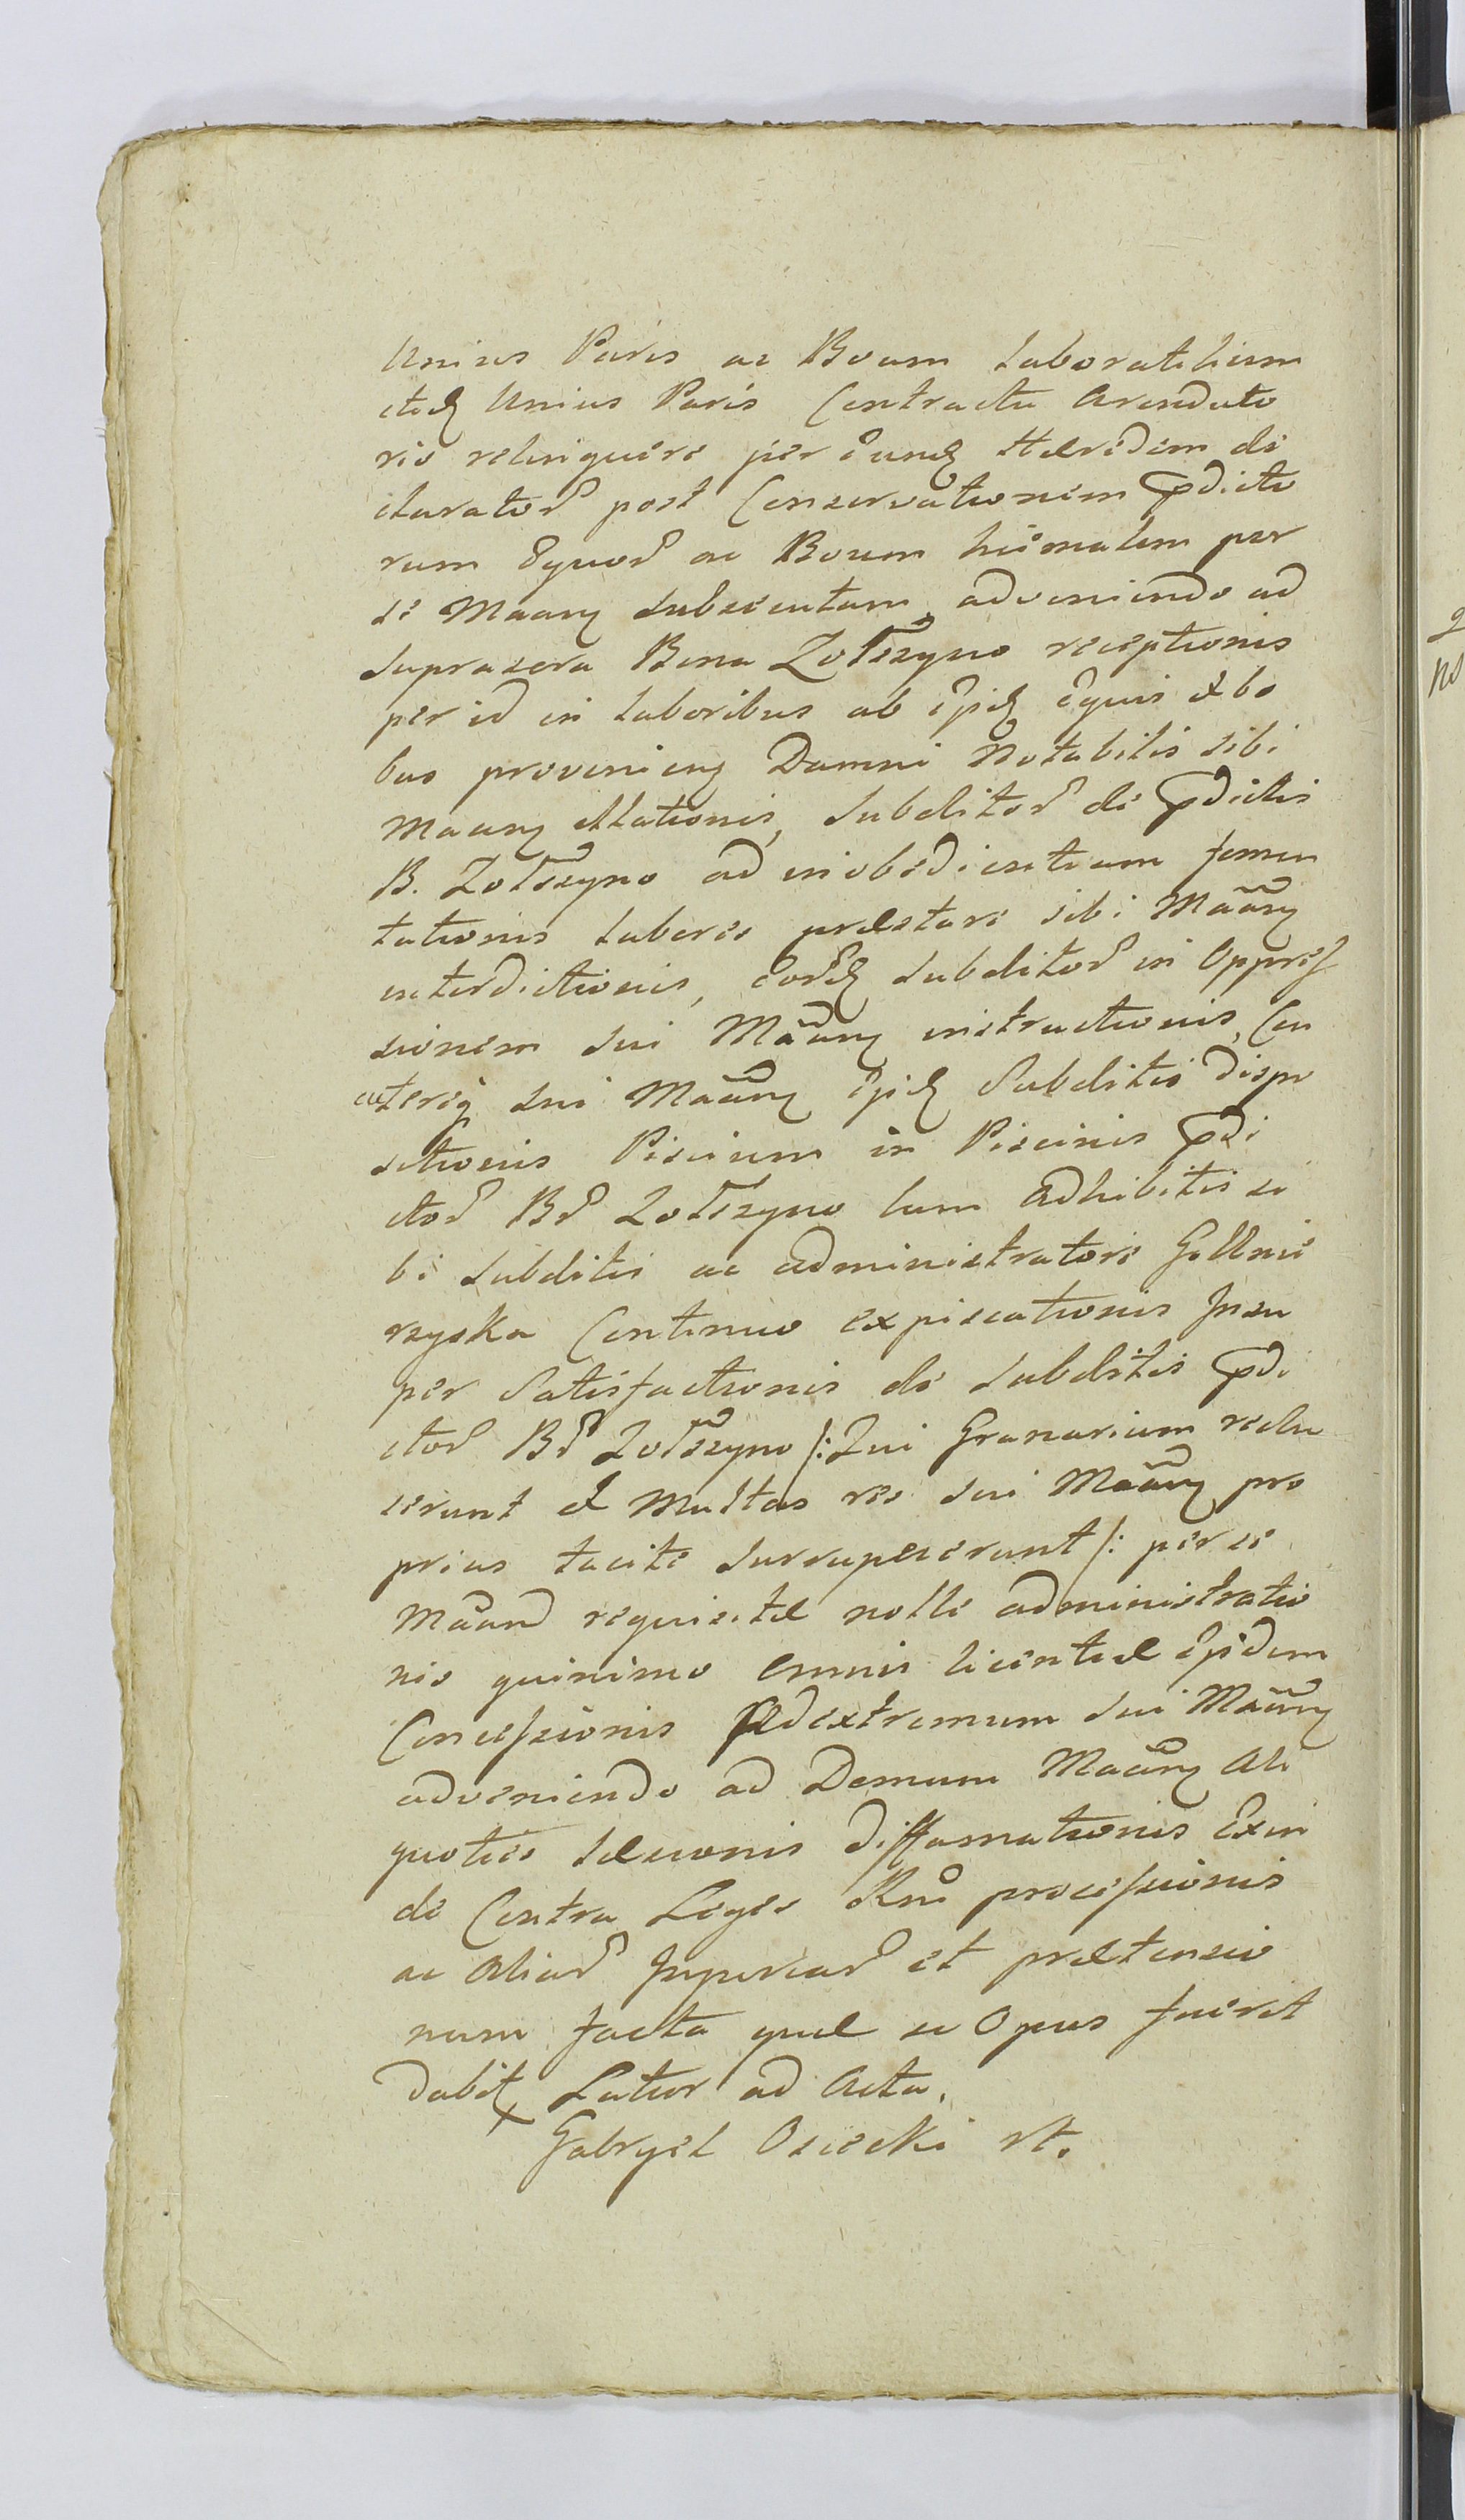 Unius Paris ac Boum laboratilium
itidꝫ Unius Paris Contractu Arendato
rio relinquere per eundꝫ Hæredem de
claratorꝫ post Conservationem pdicto
rum Equorꝫ ac Boum hiemalem per
se Maanꝫ subsecutam, adveniendo ad
suprascra Bona Zołczyno receptionis
per id in laboribus ab ipsdꝫ equis et bo
bus provenienꝫ Damni Notabilis sibi
Maanꝫ illationis, Subditorꝫ de pdictis
B. Zołczyno ad inobedientiam fomen
tationis labores præstare sibi Maanꝫ
interdictionis, eordꝫ Subditorꝫ in Oppres
sionem sui Maanꝫ instructionis, Con
ceteriq sui Maanꝫ ipsdꝫ Subditis dispo
sitionis Piscium in Piscinis pdi
ctorꝫ Brꝫ Zołczyno cum Adhibitis si
bi subditis ac administratore Gollnie
rzyska Continuo expiscationis Insu
per Satisfactionis de subditis pdi
ctorꝫ Brꝫ Zołczyno /: Qui Granarium reclu
serunt et Multas res sui Maanꝫ pro
prias tacite surrupuerunt /: per se
Maand requisitæ nolle administratio
nis quinimo omnis licentiæ ipsdem
Concessionis Ad extremum sui Maanꝫ
adveniendo ad Domum Maanꝫ Ali
quoties læsionis diffamationis Exin
de Contra Leges Rni processionis
ac Aliarꝫ Injuriarꝫ et prætensio
num facta quæ si Opus fuerit
dabitꝫ Latior ad Acta.
Gabryel Osiecki